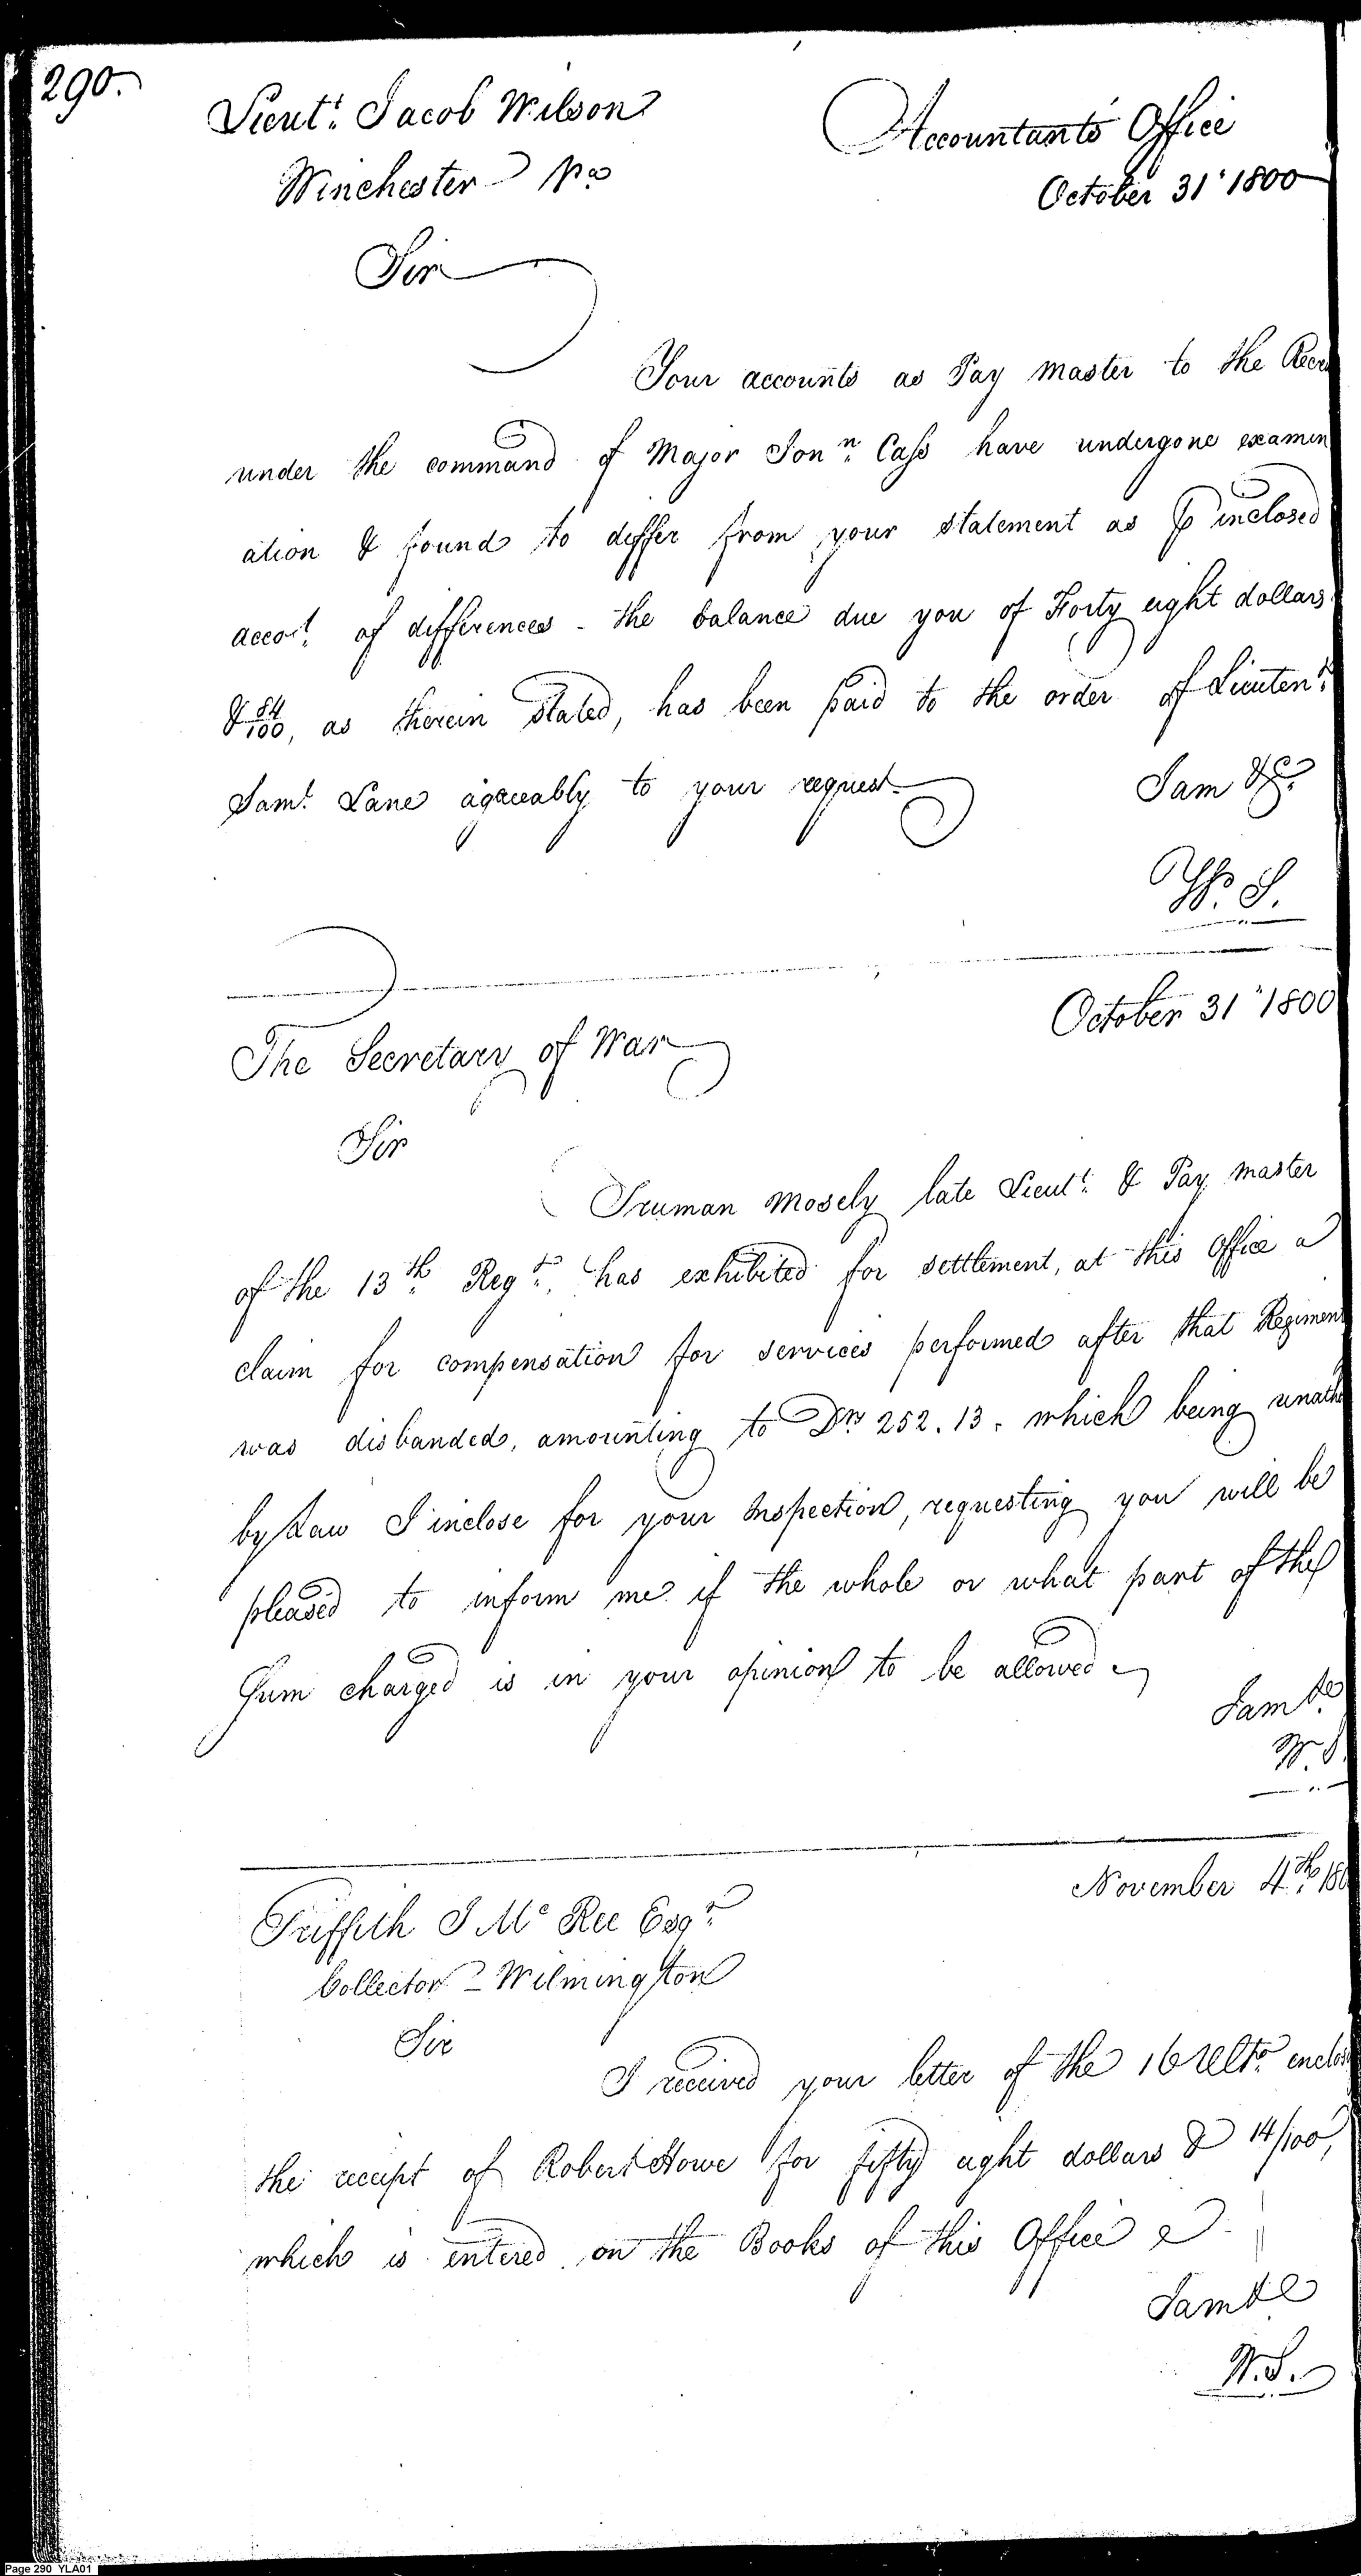 290.
Lieut.t Jacob Wilson
Winchester Va
Accountants Office
October 31 1800
Sir
Your accounts as Pay master to the
under the command of Major Jon.n Cass have undergone examin
ation & found to differ from your statement as ⅌ inclosed
accot. of differences - the balance due you of Forty eight dollars
& 84/100, as therein stated, has been paid to the order of Lieuten.t
Sam.l Lane agreeably to your request
I am &c.
W. S.
October 31 1800
The Secretary of War
Sir
Truman Mosely late Lieut.t & Pay master
of the 13th Reg.t has exhibited for settlement, at this Office a
claim for compensation for services performed after that Regiment
was disbanded, amounting to Drs 252.13. which being
by Law I inclose for your Inspection, requesting you will be
pleased to inform me if the whole or what part of the
Sum charged is in your opinion to be allowed
I am &c
W. S.
November 4th 180
Griffith J McRee Esqr.
Collector - Wilmington
Sir
I received your letter of the 16 Ulto. enclos
the receipt of Robert Howe for fifty eight dollars & 14/100,
which is entered on the Books of this Office
I am &c
W. S.
Page 290 YLA01